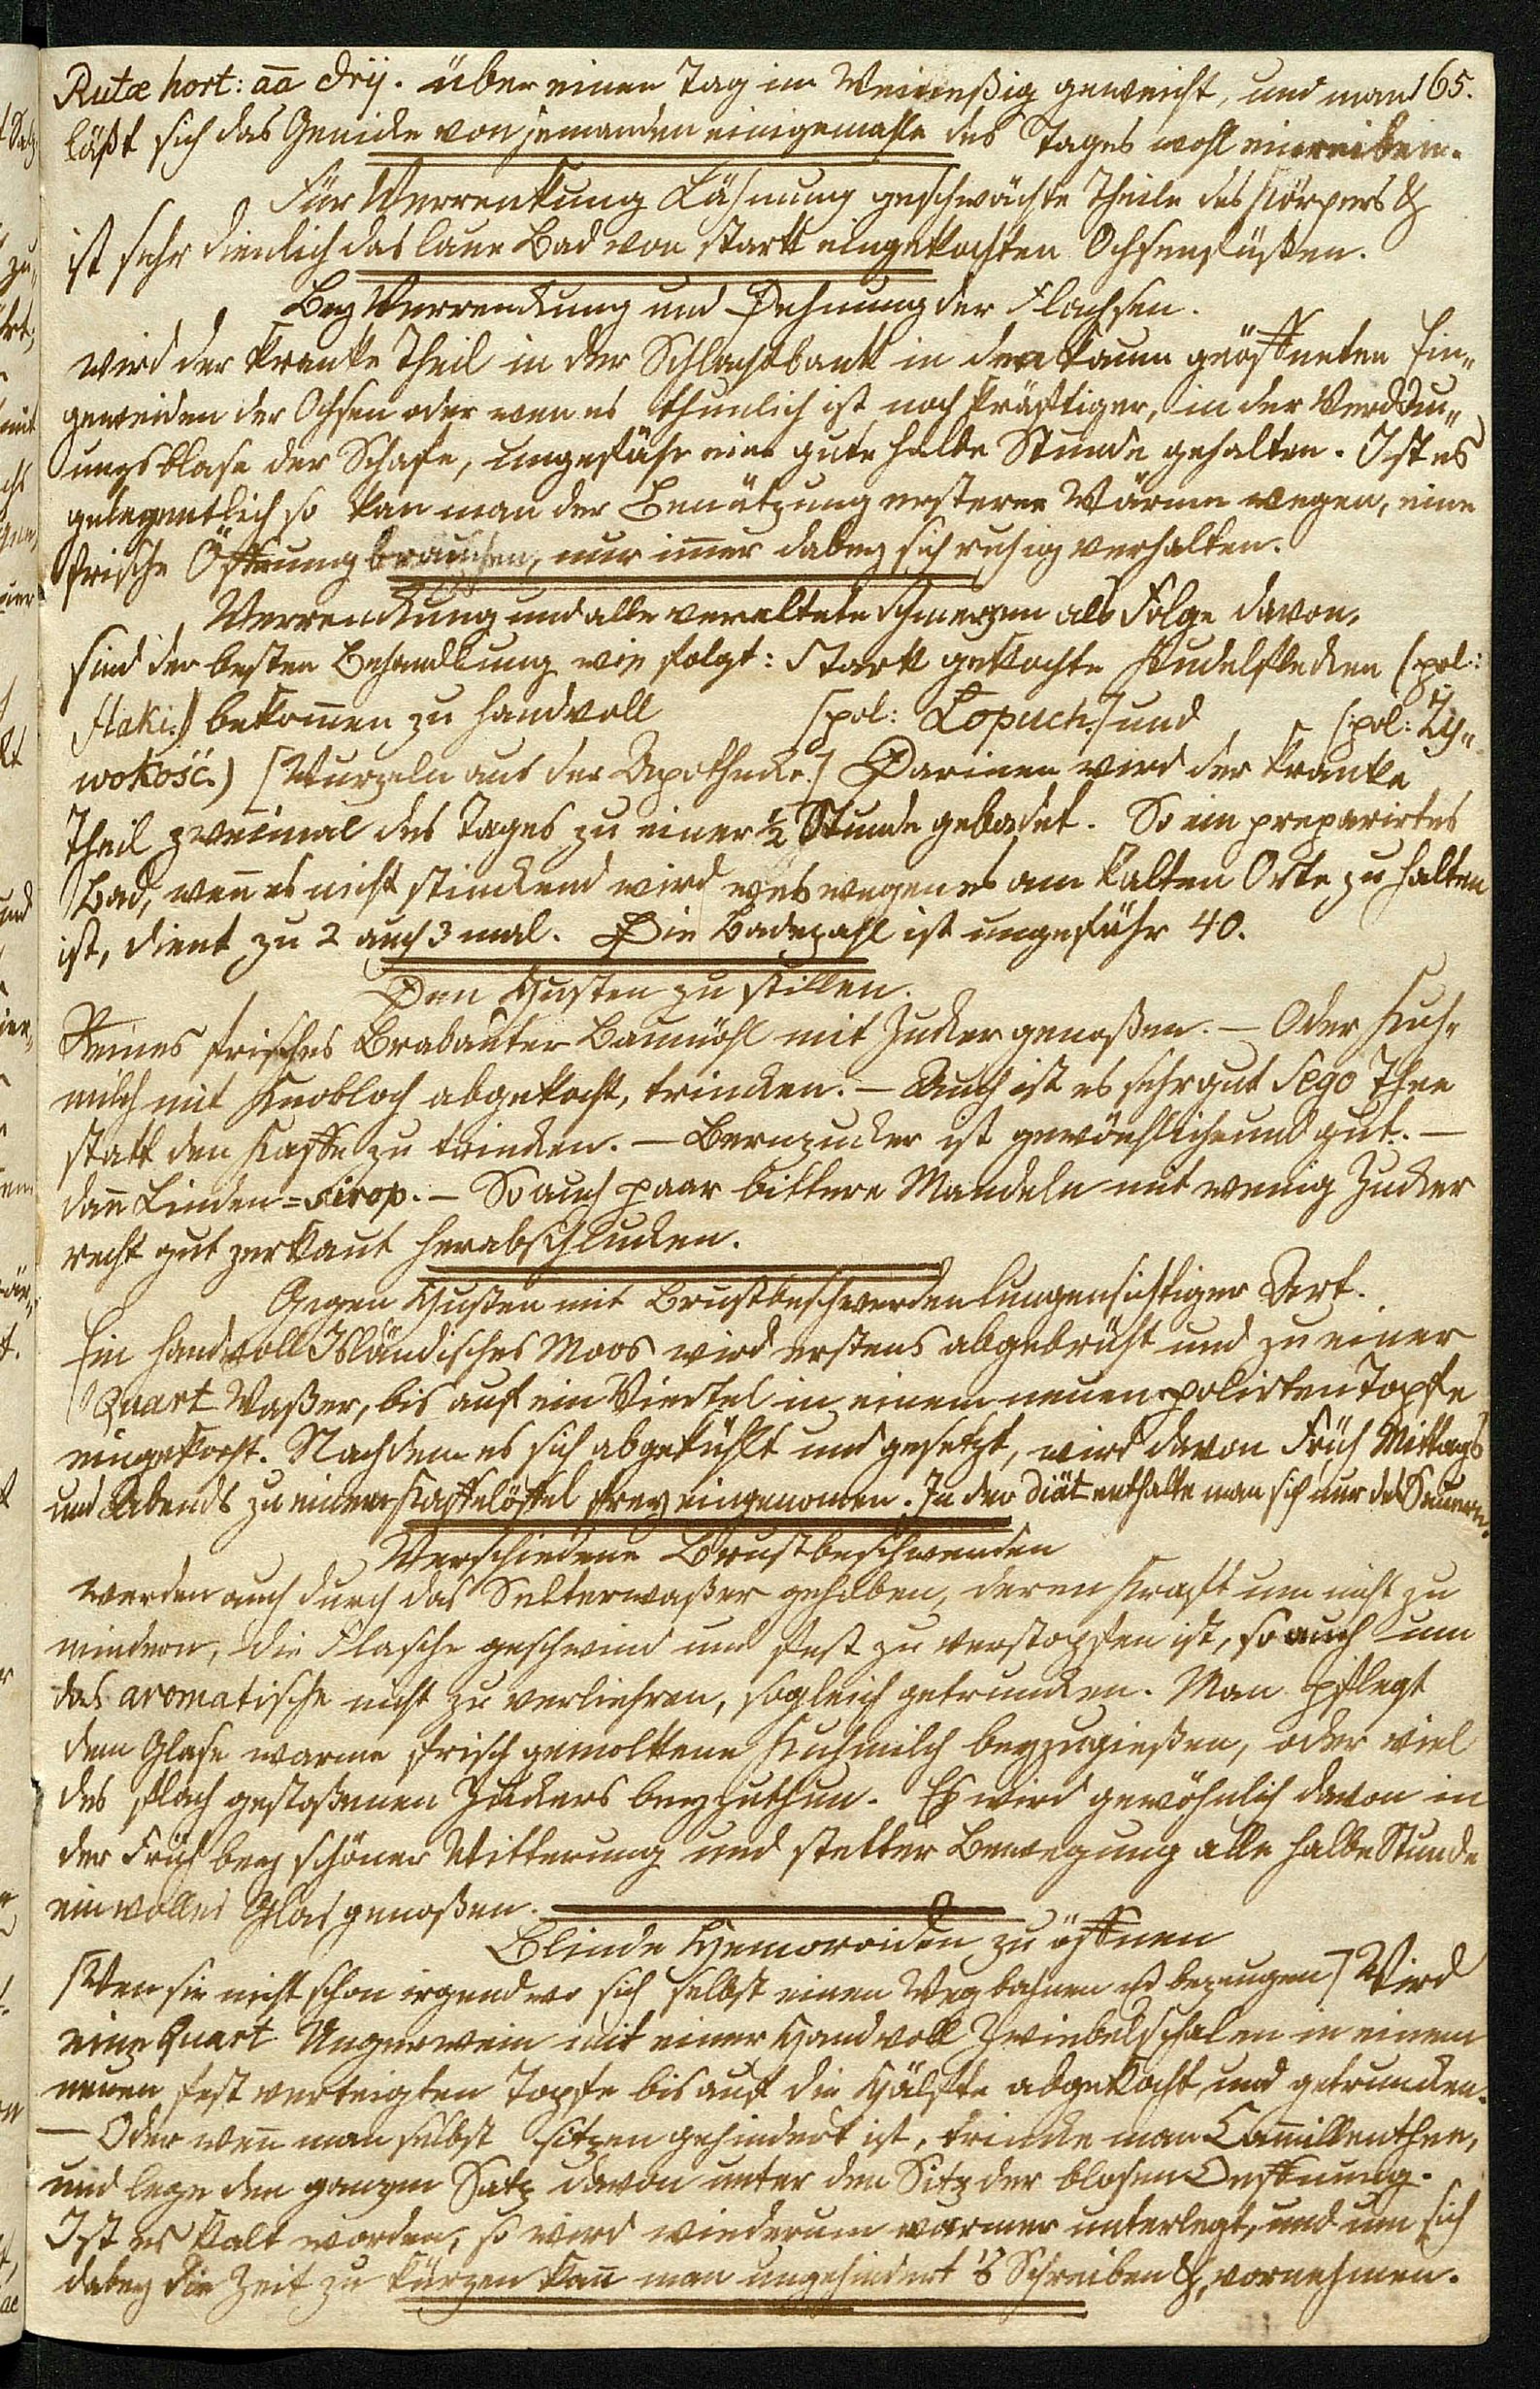 165.
Rutæ hort: āā drij. über einen Tag im Weineßig geweicht, und man
läßt sich das Genicke von jemanden einigemahle des Tages wohl einreiben.
Für Verrenkung Lähmung geschwächte Theile des Körpers &
ist sehr dienlich das laue Bad von stark eingekochten Ochsenfüßen.
Bey Verrenckung und Dehnung der Flachsen.
wird der kranke Theil in der Schlachtbank in den kaum geöffneten Ein„
geweiden der Ochsen oder wen es thunlich ist noch kräftiger, in der Verdau„
ungsblase der Schafe, ungefähr eine gute halbe Stunde gehalten. Ist es
gelegentlich so kan man der Benützung ersterer Wärme wegen, eine
frische Öffnung brauchen, nur imer dabey sich ruhig verhalten.
Verrenckung und alle veraltete Schmerzen als Folge davon,
sind der besten Behandlung wie folgt: Stark gekochte Kudelflecken (:pol:
flaki:) bekomen zu Handvoll (pol: Łopuch:) und (:pol: Ży„
wokość:) [Wurzeln aus der Apothecke.] Darinen wird der kranke
Theil zweimal des Tages zu einer ½ Stunde gebadet. So ein preparirtes
Bad, wen̄ es nicht stinckend wird weswegen es am kalten Orte zu halten
ist, dient zu 2 auch 3 mal. Die Badezahl ist ungefähr 40.
Den Husten zu stillen.
Reines frisches Brabanter Baumöhl mit Zucker genoßen. – Oder Kuh„
milch mit Knobloch abgekocht, trincken. – Auch ist es sehr gut Sego Thee
statt den Kaffe zu trincken. – Bernzucker ist gewöhnlich und gut. –
dan̄ Linden=sirop. – So auch paar bittere Mandeln mit wenig Zucker
recht gut zerkaut herabschlucken.
Gegen Husten mit Brustbeschwerden lungensichtiger Art.
Ein Handvoll Isländisches Moos wird erstens abgebrüht und zu einer
Quart Waßer, bis auf ein Viertel in einem neuen polirten Topfe
eingekocht. Nachdem es sich abgekühlt und gesetzt, wird davon Früh Mittags
und Abends zu einem Kaffelöffel frey eingenomen. In der Diät enthalte man sich nur des Sauern.
Verschiedene Brustbeschwerden
werden auch durch das Selterwaßer gehoben, deren Kraft um nicht zu
mindern, die Flasche geschwind und fest zu verstopfen ist, so auch um
das aromatische nicht zu verliehren, sogleich getruncken. Man pflegt
dem Glase warme frisch gemolkene Kuhmilch beyzugießen, oder viel
des flach gestoßenen Zuckers beyzuthun. Es wird gewöhnlich davon in
der Früh bey schöner Witterung und stetter Bewegung alle halbe Stunde
ein volles Glas genoßen.
Blinde Hemoroiden zu öffnen
[Wen sie nicht schon irgendwo sich selbst einen Weg bahnen u bezeugen] Wird
eine Quart Ungerwein mit einer Handvoll Zwiebelschalen in einem
neuen fest verteigten Topfe bis auf die Hälfte abgekocht, und getruncken.
– Oder wen̄ man selbst sitzen gehindert ist, trincke man Camillenthee,
und lege den ganzen Satz davon unter den Sitz der blosen Oeffnung.
Ist es kalt worden, so wird wiederum warmer unterlegt, und um sich
dabey die Zeit zu kürzen kan̄ man ungehindert 's Schreiben &, vornehmen.